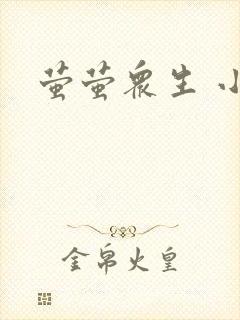 萤萤众生 小
金帛火皇